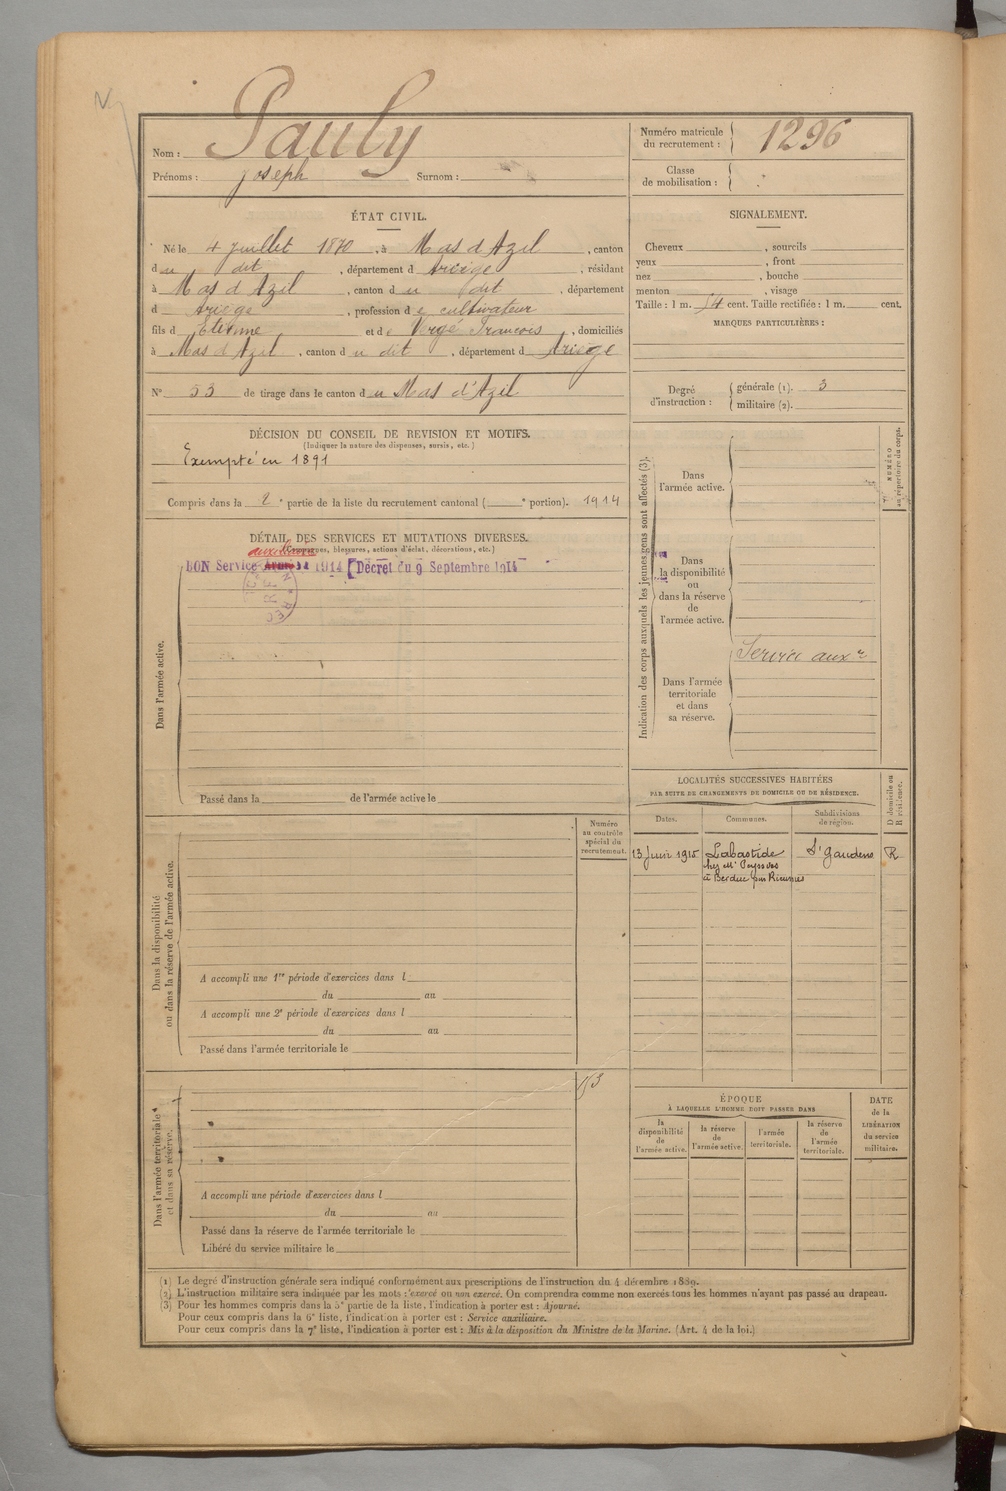 Nom : Pauly
Prénoms : Joseph Surnom :
Numéro matricule du recrutement : 1296
Classe de mobilisation :
ÉTAT CIVIL.
Né le 4 juillet 1870, à Mas d'Azil, canton
du dit, département d Ariège, résidant
à Mas d'Azil, canton du dit, département
d Ariège, profession de cultivateur
fils d Etienne et de Vergé Francois, domiciliés
à Mas d'Azil, canton du dit, département d Ariège
N° 53 de tirage dans le canton du Mas d'Azil
SIGNALEMENT.
Cheveux, sourcils
yeux, front
nez, bouche
menton, visage
Taille : 1 m. 54 cent. Taille rectifiée : 1 m. cent.
MARQUES PARTICULIÈRES :
Degré d'instruction : générale (1). 3
militaire (2).
DÉCISION DU CONSEIL DE REVISION ET MOTIFS.
(Indiquer la nature des dispenses, sursis, etc.)
Exempté en 1891
Compris dans la 2e partie de la liste du recrutement cantonal ( e portion). 1914
DÉTAIL DES SERVICES ET MUTATIONS DIVERSES.
(Campagnes, blessures, actions d'éclat, décorations, etc.)
auxiliaire
BON Service Armé 1914 [Décret du 9 Septembre 1914
Dans l'armée active.
Passé dans la de l'armée active le
Indication des corps auxquels les jeunes gens sont affectés (3).
NUMÉRO au répertoire du corps.
Dans l'armée active.
Dans la disponibilité ou dans la réserve de l'armée active.
Dans l'armée territoriale et dans sa réserve.
Service auxre
LOCALITÉS SUCCESSIVES HABITÉES
PAR SUITE DE CHANGEMENTS DE DOMICILE OU DE RÉSIDENCE.
D domicile ou R résidence.
Dates. Communes. Subdivisions de région.
13 Juin 1915 Labastide St Gaudens R
chez Mr
à Berduc par Rieumes
Numéro au contrôle spécial du recrutement.
Dans la disponibilité ou dans la réserve de l'armée active.
A accompli une 1re période d'exercices dans l
du au
A accompli une 2e période d'exercices dans l
du au
Passé dans l'armée territoriale le
Dans l'armée territoriale et dans sa réserve.
A accompli une période d'exercices dans l
du au
Passé dans la réserve de l'armée territoriale le
Libéré du service militaire le
ÉPOQUE
À LAQUELLE L'HOMME DOIT PASSER DANS
la disponibilité de l'armée active. la réserve de l'armée active. l'armée territoriale. la réserve de l'armée territoriale.
DATE de la LIBÉRATION du service militaire.
(1) Le degré d'instruction générale sera indiqué conformément aux prescriptions de l'instruction du 4 décembre 1889.
(2) L'instruction militaire sera indiquée par les mots : exercé ou non exercé. On comprendra comme non exercés tous les hommes n'ayant pas passé au drapeau.
(3) Pour les hommes compris dans la 5e partie de la liste, l'indication à porter est : Ajourné.
Pour ceux compris dans la 6e liste, l'indication à porter est : Service auxiliaire.
Pour ceux compris dans la 7e liste, l'indication à porter est : Mis à la disposition du Ministre de la Marine. (Art. 4 de la loi.)